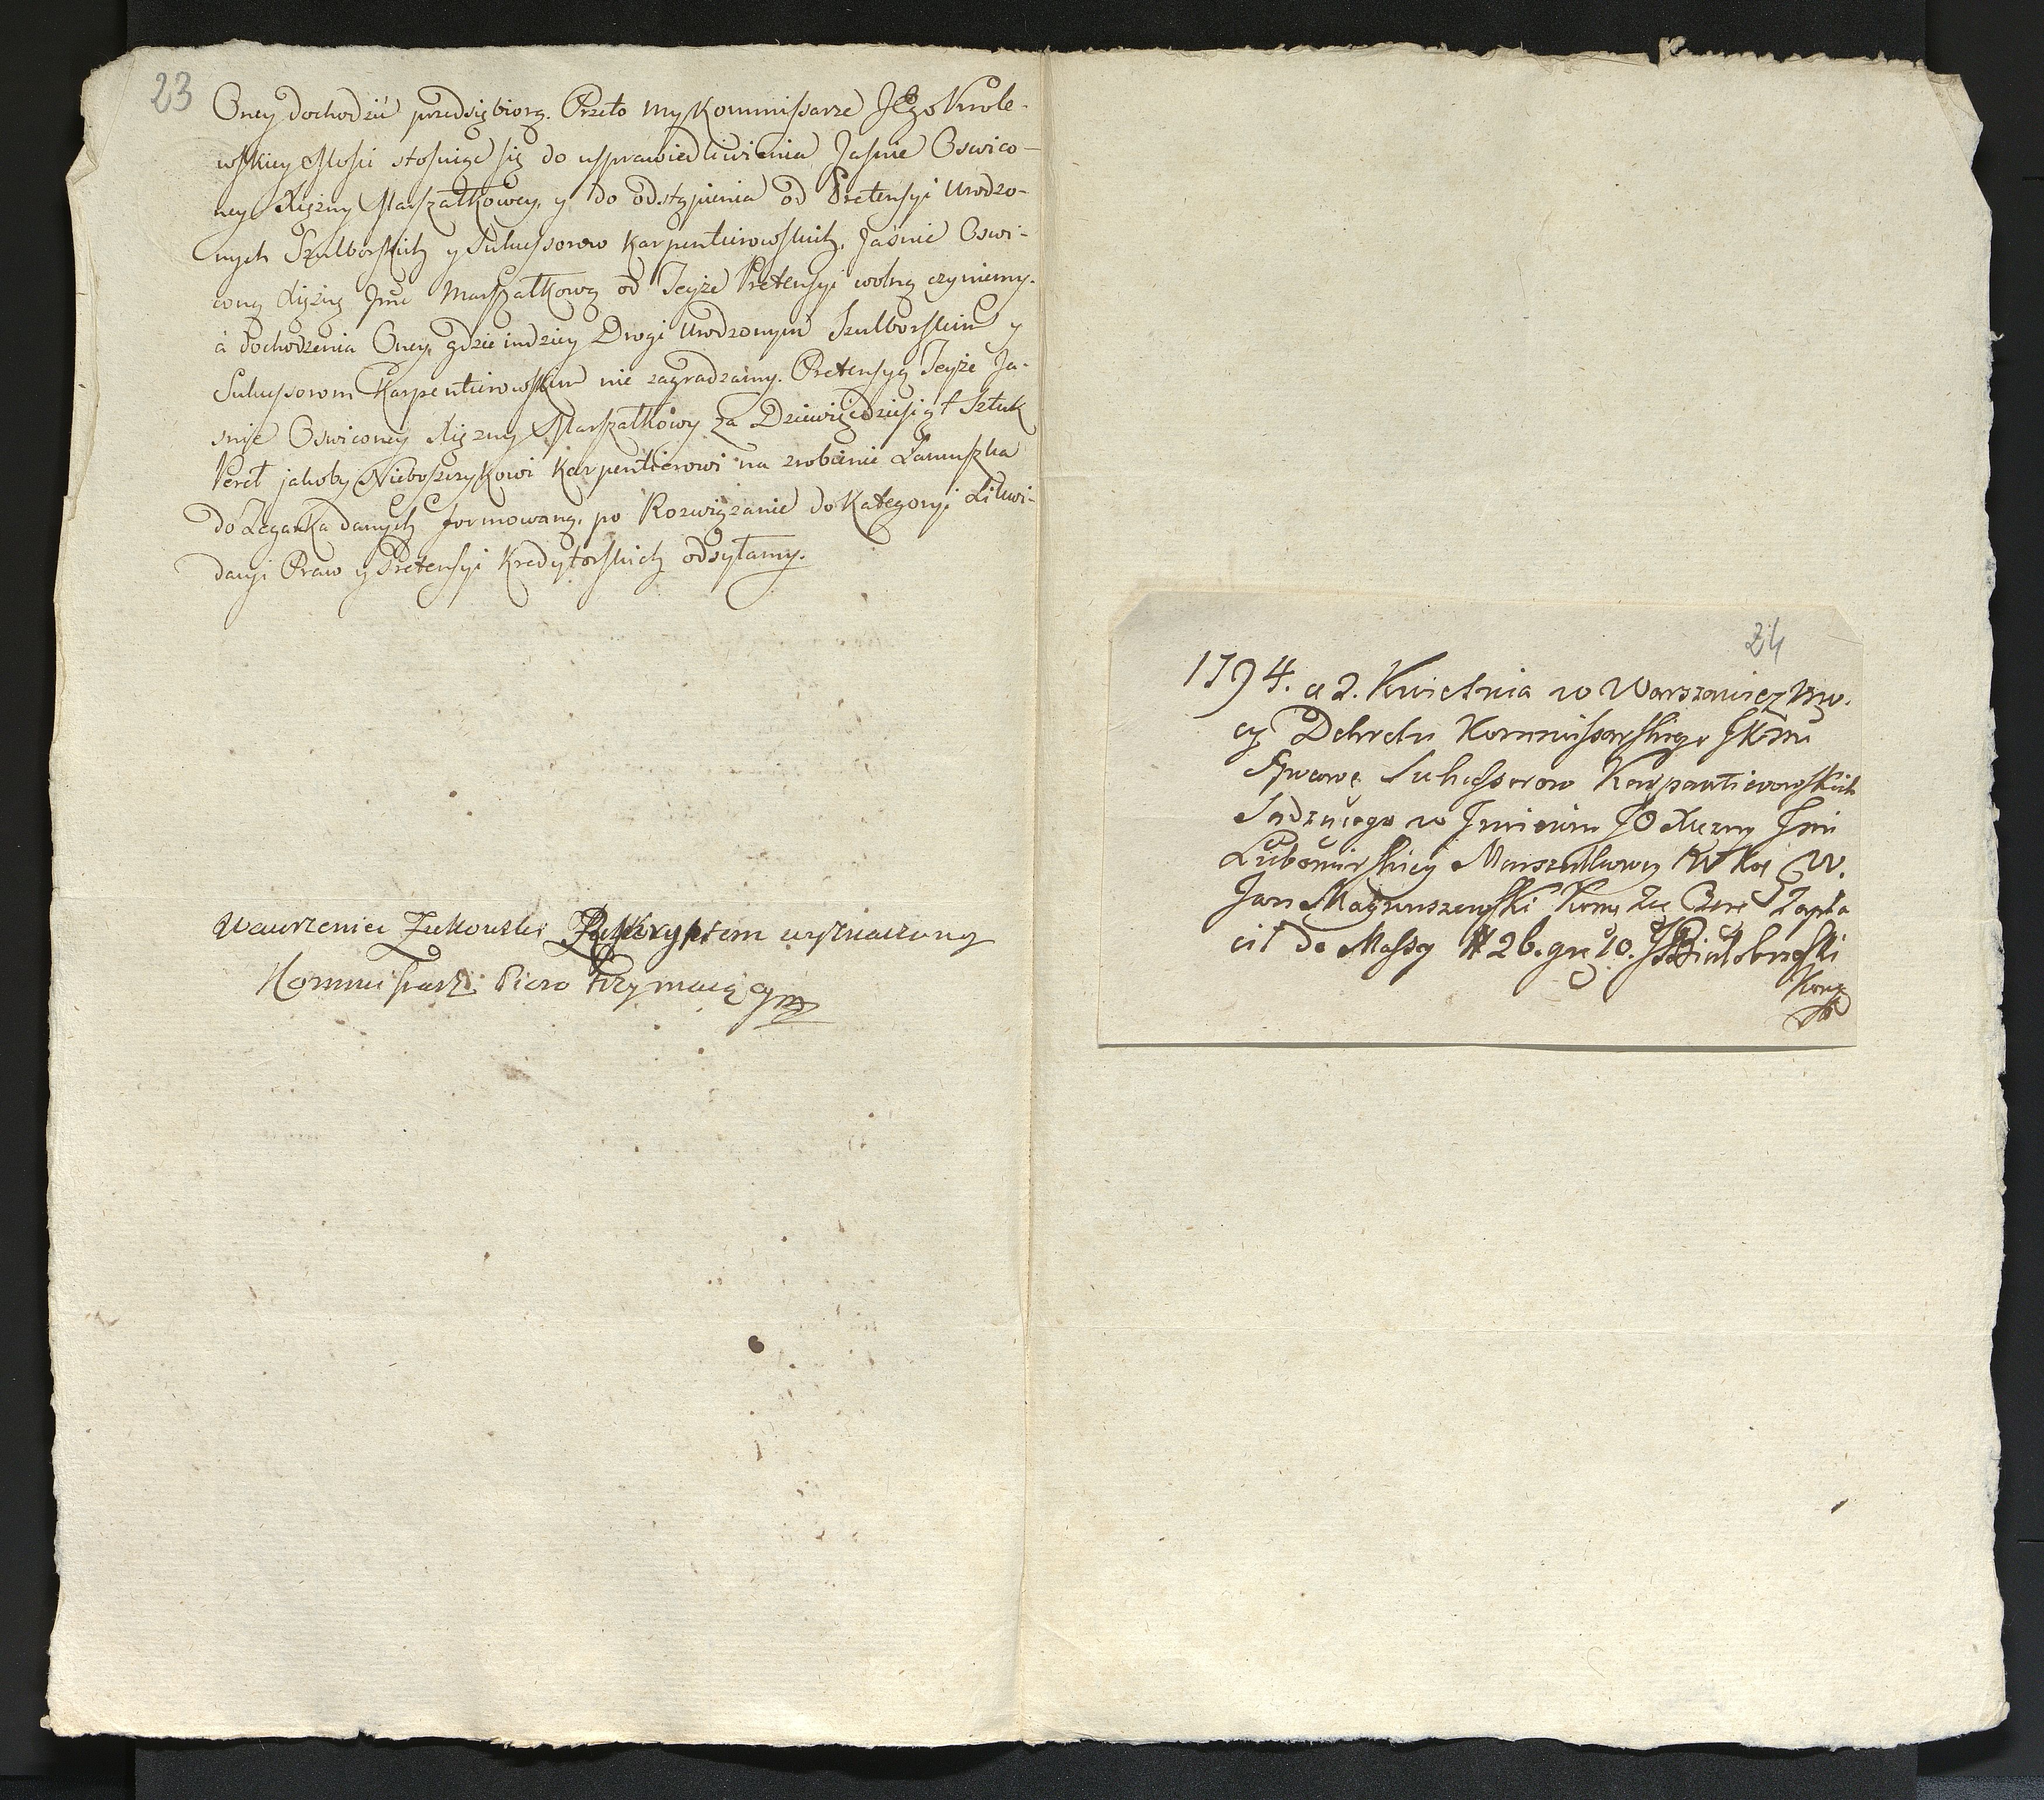 23
Oney dochodzić przedsiębiorą. Przeto my Kommissarze JEgo Krole-
wskiey Mości stosuiąc się do usprawiedliwienia Jaśnie Oswico-
ney Xiężny Marszałkowey, y do odstąpienia od Pretensyi Urodzo-
nych Szulborskich y Sukcessorow Karpentierowskich, Jaśnie Oswi-
coną Xiężnę Jmć Marszałkową od Teyże Pretensyi wolną czyniemy.
á dochodzenia Oney, gdzie indziey Drogi Urodzonym Szulborskim y
Sukcessorom Karpentierowskim nie zagradzamy. Pretensyą Teyże Ja-
śnie Oswiconey Xiężny Marszałkowy za Dziewięcdziesiąt Sztuk
Pereł jakoby Nieboszczykowi Karpentierowi na zrobienie Łancuszka
do Zegarka danych formowaną, po Rozwiązanie do Kategoryi Likwi-
dacyi Praw y Pretensyi Kredytorskich odsyłamy.
Wawrzeniec Zukowski Reskryptem wyznaczony
Kommissarz Pioro trzymaiący
24
1794. d 2. Kwietnia w Warszawie z Mo-
cy Dekretu Kommissarskiego JKMci
Sprawę Sukcessorow Karpantierowskich
Sądzącego w Jmieniu JO Xiężny Jmci
Lubomirskiey Marszałkowy WK W.
Jan Matuszewski Zapła
cił do Massy # 26. gr 10. Białobrzeski